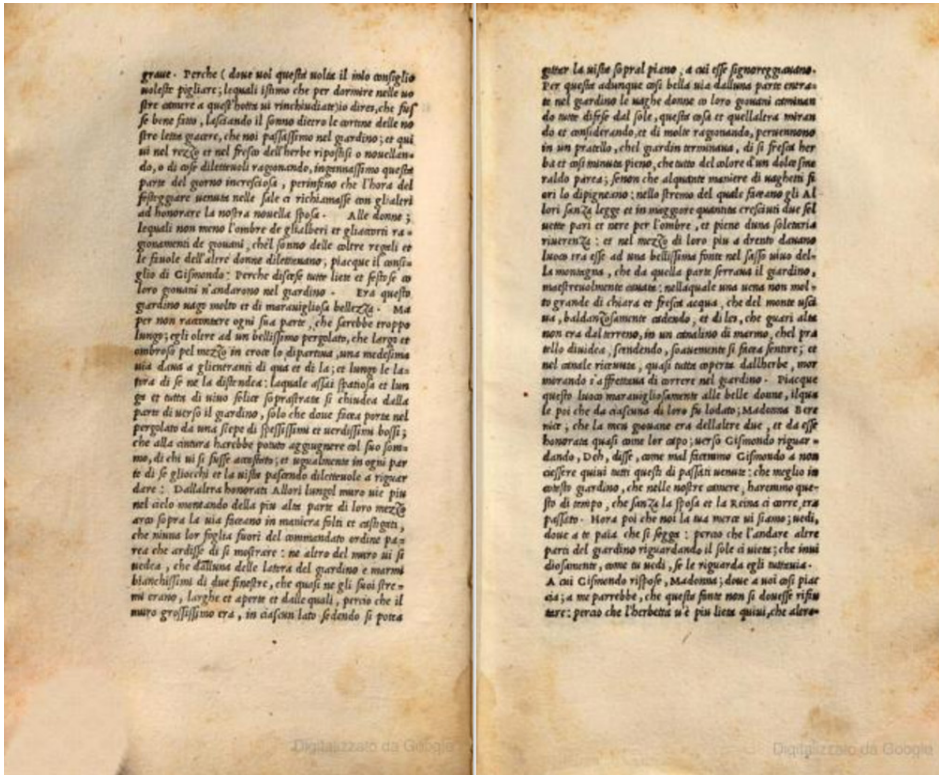 graue. Perche (doue uol questa uolta il mio consiglio
uoleste pigliare; lequali istimo che per dormire nelle uo
stre camere a quest'hotta ui rinchiudiate) io direi, che fos
se bene fatto, lasciando il sonno dietro le cortine delle no
stre letta giacere, che noi passassimo nel giardino; et qui
ui nel rezzo et nel fresco dell'herbe ripostisi o nouellan-
do, o di cose diletteuoli ragionando, ingennassimo questa
parte del giorno incresciosa, perinfino che l'hora del
festeggiare uenuta nelle sale ci richiamasse con glialtri
ad honorare la nostra nouella sposa. Alle donne;
lequali non meno l'ombre de glialberi et gliaccorti ra-
gionamenti de giouani, chel sonno delle coltre regali et
le fauole dell'altre donne dilettauano; piacque il consi-
glio di Gismondo: Perche discese tutte liete et festose co
loro giouani n'andarono nel giardino. Era questo
giardino uago molto et di marauigliosa bellezza. Ma
per non raccontare ogni sua parte, che sarebbe troppo
lungo; egli oltre ad un bellissimo pergolato, che largo et
ombroso pel mezzo in croce lo dipartiua, una medesima
uia daua a glientranti di qua et di la; et lungo le la-
tora di se ne la distendea: laquale assai spatiosa et lun
ga et tutta di uiuo selice soprastrata si chiudea dalla
parte di uerso il giardino, solo che doue facea porte nel
pergolato da una siepe di spessissimi et uerdissimi bossi;
che alla cintura harebbe potuto aggiugnere col suo som-
mo, di chi ui si fusse accostato; et ugualmente in ogni par
te di se gliocchi et la uista pascendo diletteuole a riguar
dare: Dallaltra honorati Allori lungol muro uie piu
nel cielo montando della piu alta parte di loro mezzo
arco sopra la uia faceano in maniera folti et castigati,
che niuna lor foglia fuori del commandato ordine pa-
rea che ardisse di si mostrare: ne altro del muro ui si
uedea, che dalluna delle latora del giardino e marmi
bianchissimi di due finestre, che quasi ne gli suoi stre-
mi erano, larghe et aperte et dalle quali, percio che il
muro grossissimo era, in ciascun lato sedendo si potea
gittar la uista sopral piano, a cui esse signoreggiauano.
Per questa adunque cosi bella uia dalluna parte entra-
te nel giardino le uaghe donne co loro giouani caminan
do tutte difese dal sole, questa cosa et quellaltra miran
do et considerando, et di molte ragionando, peruennono
in un pratello, chel giardin terminaua, di si fresca her
ba et cosi minuta pieno, che tutto del colore d'un dolce sme
raldo parea; senon che alquante maniere di uaghetti fi
ori lo dipigneano: nello stremo del quale faceano gli Al
lori sanza legge et in maggiore quantita cresciuti due sel
uette pari et nere per l'ombre, et piene duna soletaria
riuerenza: et nel mezzo di loro piu a drento dauano
luoco era esse ad una bellissima fonte nel sasso uiuo del-
la montagna, che da quella parte serraua il giardino,
maestreuolmente cauata: nellaquale una uena non mol-
to grande di chiara et fresca acqua, che del monte usci
ua, baldanzosamente cadendo, et di lei, che guari alta
non era dal terreno, in un canalino di marmo, chel pra
tello diuidea, scendendo, soauemente si facea sentire; et
nel canale riceuuta, quasi tutta coperta dallherbe, mor
morando s'affrettaua di correre nel giardino. Piacque
questo luoco marauigliosamente alle belle donne, ilqua
le poi che da ciascuna di loro fu lodato; Madonna Bere
nice, che la meu giouane era dellaltre due, et da esse
honorata quasi come lor capo; uerso Gismondo riguar-
dando, Deh, disse, come mal facemmo Gismondo a non
ciessere quiui tutti questi di passati uenute: che meglio in
cotesto giardino, che nelle nostre camere, haremmo que-
sto di tempo, che sanza la sposa et la Reina ci corre, era
passato. Hora poi che noi la tua merce ui siamo; uedi,
doue a te paia che si segga: percio che l'andare altre
parti del giardino riguardando il sole ci uieta; che inui
diosamente, come tu uedi, se le riguarda egli tuttauia.
A cui Gismondo rispose, Madonna; doue a uoi cosi piac
cia; a me parrebbe, che questa fonte non si douesse rifiu
tare: percio che l'herbetta u'è piu lieta quiui, che altro-
Digitalizzato da Google
Digitalizzato da Google